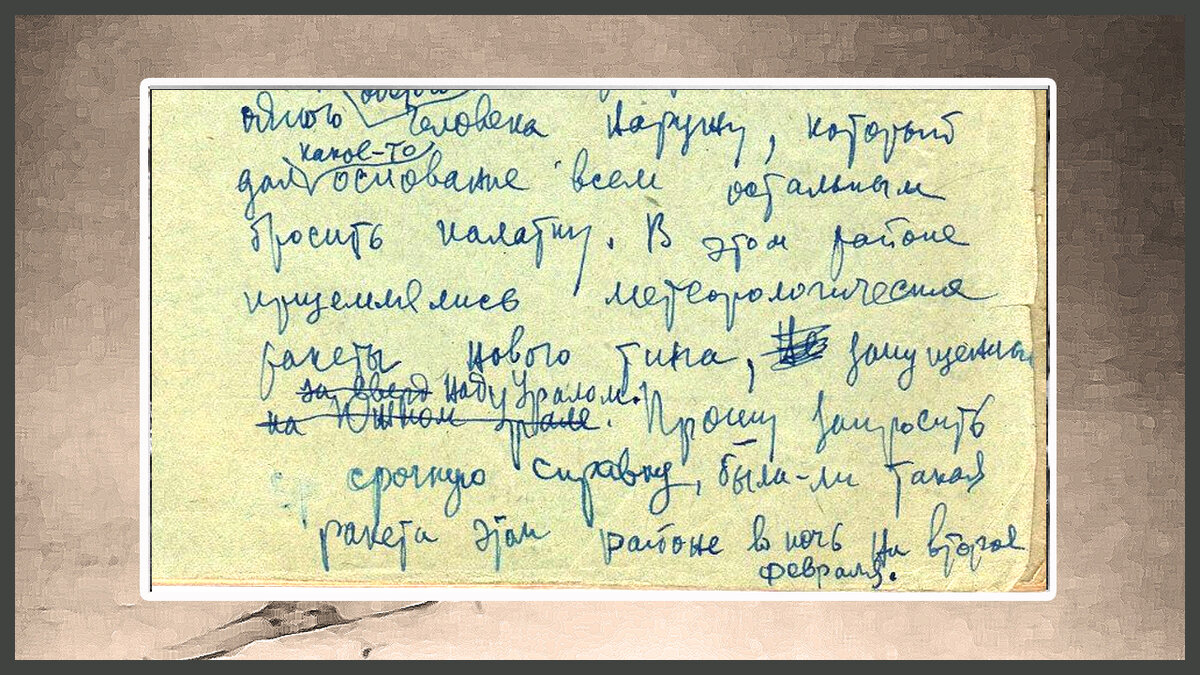 одного человека наружу, который
какое-то
дал основание всем остальным
бросить палатку. В этом районе
приземлялись метеорологические
ракеты нового типа, запущенные
за север над Уралом.
на Южном Урале. Прошу запросить
срочную справку, была-ли такая
ракета этом районе в ночь на второе
февраля.